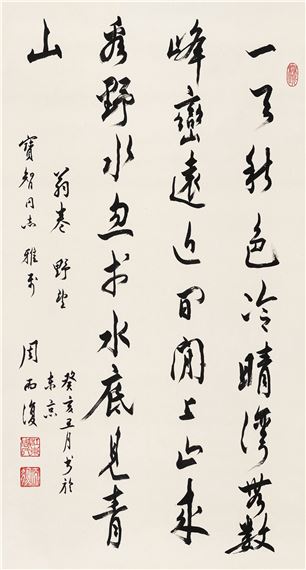 一天秋色冷晴灣無數
峰巒遠近間閒上山來
看野水忽於水底見青
山
翁卷 野望
寶智同志 雅屬
癸亥五月书於
東京
周而復